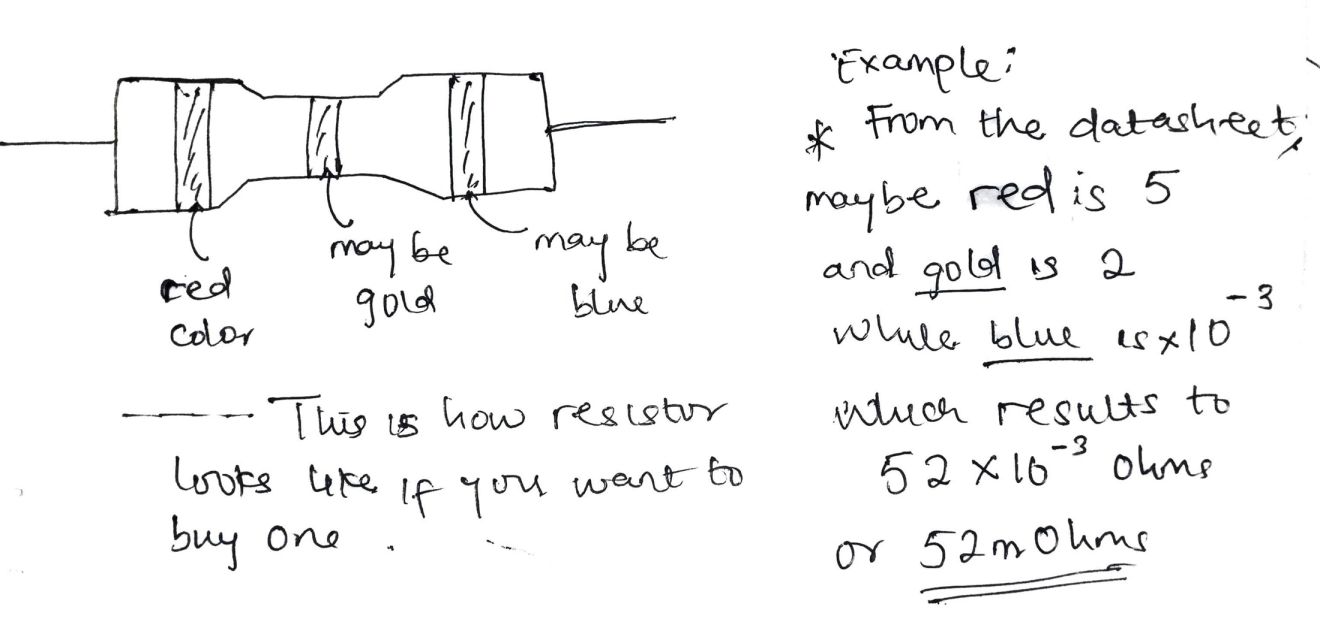 red
color
may be
gold
may be
blue
This is how resistor
looks like if you want to
buy one.
Example:
* From the datasheet,
maybe red is 5
and gold is 2
while blue is x10⁻³
which results to
52 x 10⁻³ Ohms
or 52m Ohms